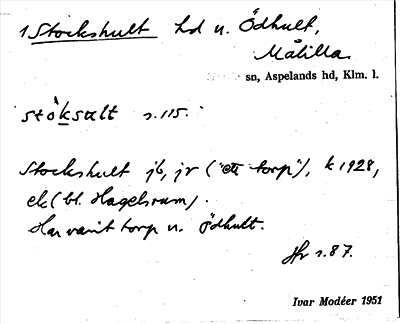 1 Stockshult hd u. Ödhult,
Målilla
sn, Aspelands hd, Klm. l.
stòksalt s. 115.
Stockshult jb, jr ("ett torp"), k 1928,
ek (bl. Hagelsrum).
Har varit torp u. Ödhult.
Hr s. 87.
Ivar Modéer 1951